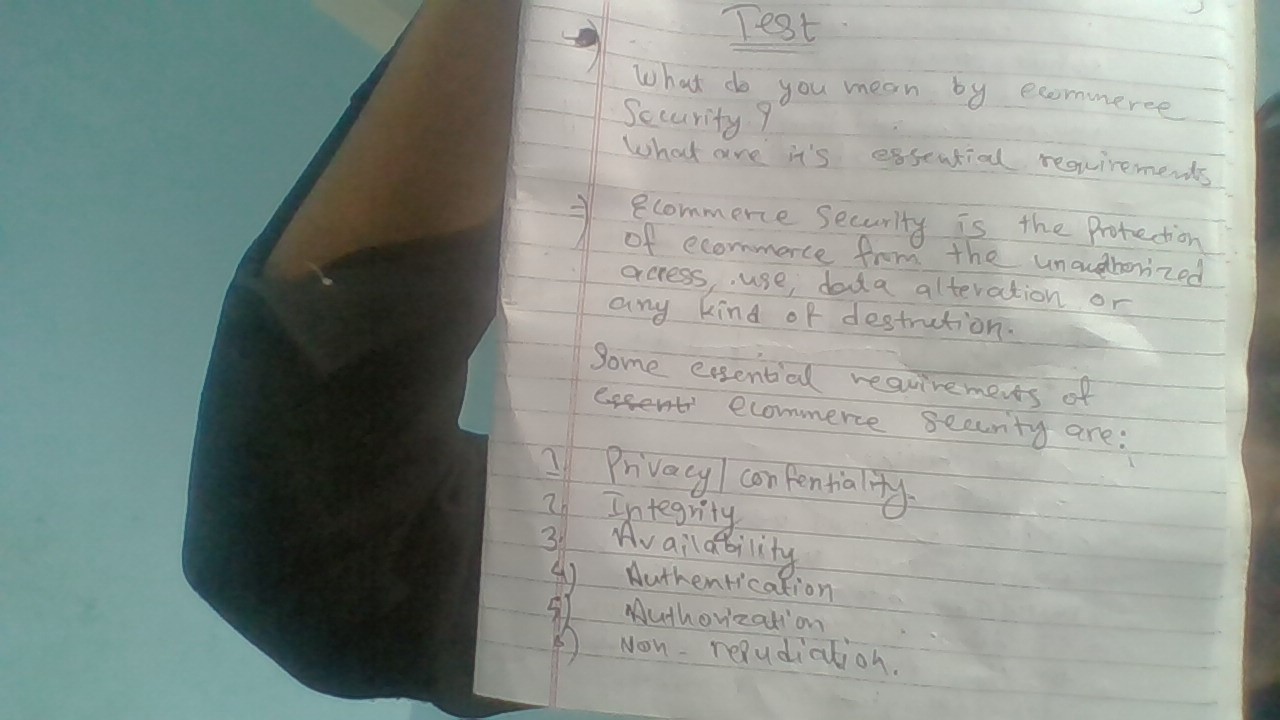 Test
What do you mean by ecommerce
Security ?
What are it's essential requirements
=) Ecommerce Security is the Protection
of ecommerce from the unauthorized
access, use, data alteration or
any kind of destruction.
Some essential requirements of
essenti ecommerce security are:
1) Privacy/ confentiality.
2) Integrity
3) Availability
4) Authentication
5) Authorization
6) Non-repudiation.